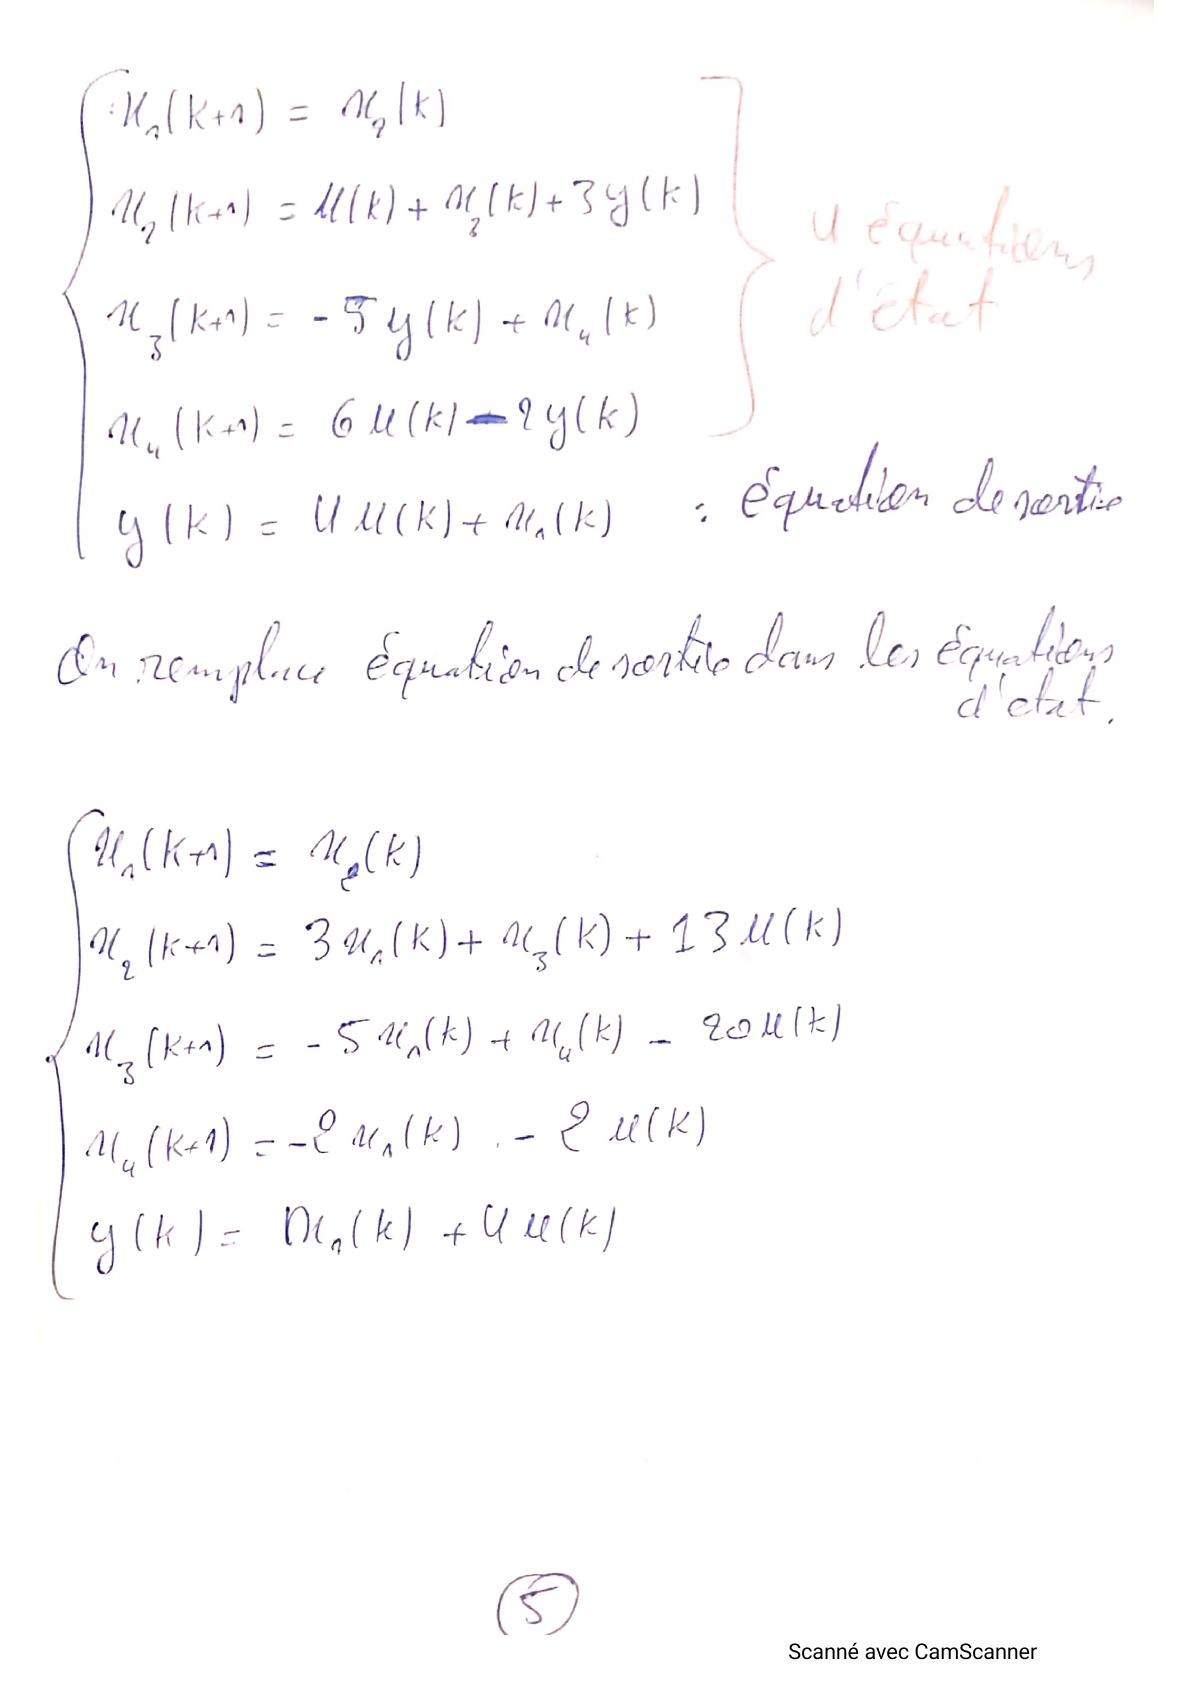 x₁(k+1) = x₂(k)
x₂(k+1) = u(k) + x₃(k) + 3y(k)
x₃(k+1) = -5y(k) + x₄(k)
x₄(k+1) = 6u(k) - 2y(k)
4 équations
d'état
y(k) = 4u(k) + x₁(k) : équation de sortie
On remplace équation de sortie dans les équations
d'état.
x₁(k+1) = x₂(k)
x₂(k+1) = 3x₁(k) + x₃(k) + 13u(k)
x₃(k+1) = -5x₁(k) + x₄(k) - 20u(k)
x₄(k+1) = -2x₁(k) - 2u(k)
y(k) = x₁(k) + 4u(k)
5
Scanné avec CamScanner